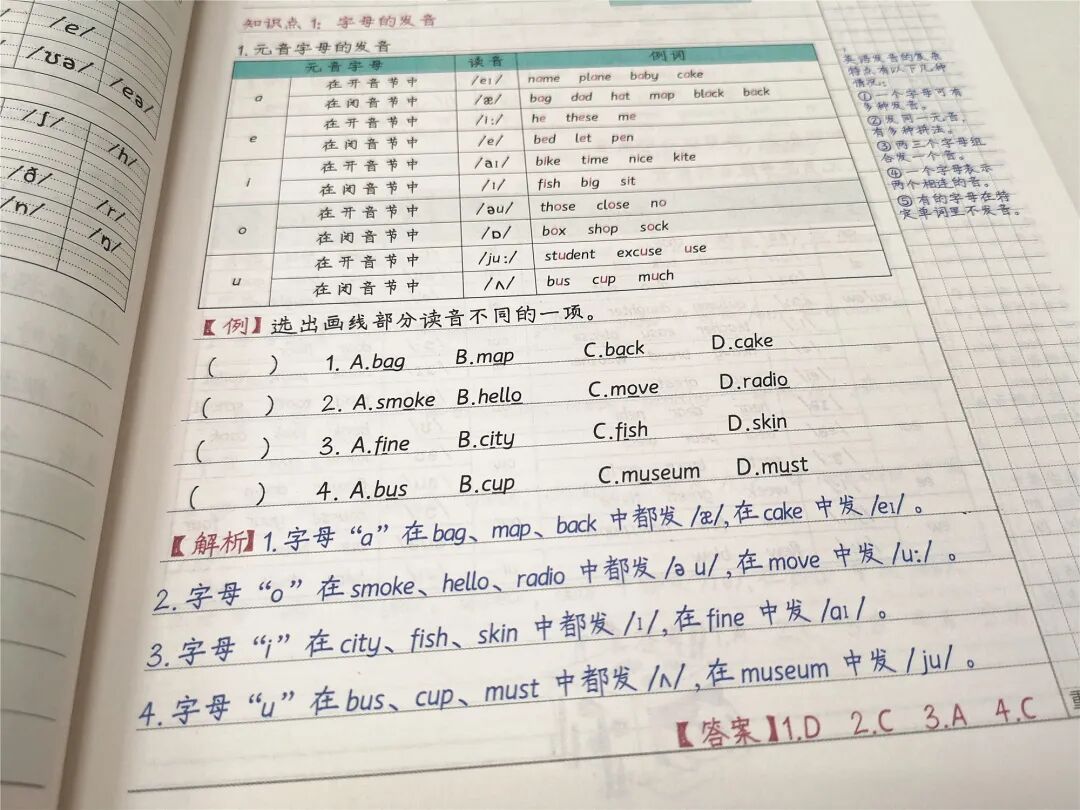 /e/
/ʊə/
/eə/
/ʃ/
/h/
/ð/
/r/
/n/
/ŋ/
知识点1: 字母的发音
1.元音字母的发音
元音字母 读音 例词
a 在开音节中 /eɪ/ name plane baby cake
在闭音节中 /æ/ bag dad hat map black back
e 在开音节中 /i:/ he these me
在闭音节中 /e/ bed let pen
i 在开音节中 /aɪ/ bike time nice kite
在闭音节中 /ɪ/ fish big sit
o 在开音节中 /əu/ those close no
在闭音节中 /ɒ/ box shop sock
u 在开音节中 /ju:/ student excuse use
在闭音节中 /ʌ/ bus cup much
【例】选出画线部分读音不同的一项。
( ) 1. A.bag B.map C.back D.cake
( ) 2. A.smoke B.hello C.move D.radio
( ) 3. A.fine B.city C.fish D.skin
( ) 4. A.bus B.cup C.museum D.must
【解析】1.字母“a”在bag、map、back 中都发/æ/,在cake 中发/eɪ/。
2.字母“o”在smoke、hello、radio 中都发/ə u/,在move 中发/u:/。
3.字母“i”在city、fish、skin 中都发/ɪ/,在fine 中发/aɪ/。
4.字母“u”在bus、cup、must 中都发/ʌ/,在museum 中发/ju/。
【答案】1.D 2.C 3.A 4.C
英语发音的复杂
特点有以下几种
情况:
①一个字母可有
多种发音。
②发同一元音,
有多种拼法。
③两三个字母组
合发一个音。
④一个字母表示
两个相连的音。
⑤有的字母在特
定单词里不发音。